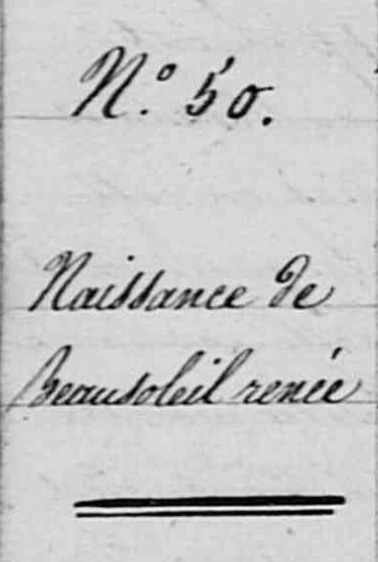 N.° 50.
Naissance de
Beausoleil renée